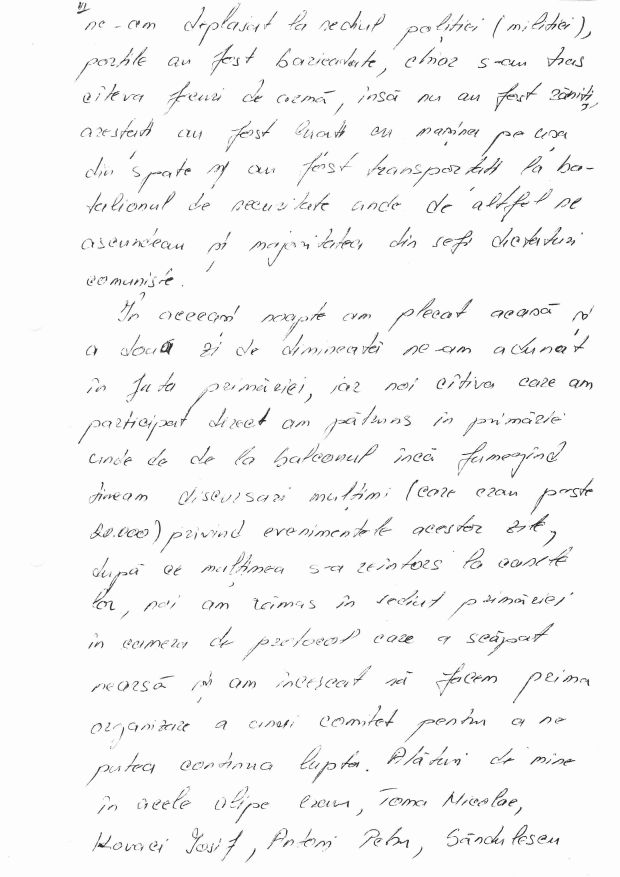 VI
ne-am deplasat la sediul poliției (miliției),
porțile au fost baricadate, chiar s-au tras
cîteva focuri de armă, însă nu au fost răniți,
arestații au fost luați cu mașina pe ușa
din spate și au fost transportați la ba-
talionul de securitate unde de altfel se
ascundeau și majoritatea din șefi dictaturi
comuniste.
În aceeași noapte am plecat acasă și
a doua zi de dimineață ne-am adunat
în fața primăriei, iar noi cîțiva care am
participat direct am pătruns în primărie
unde de de la balconul încă fumegînd
țineam discursuri mulțimi (care erau peste
20.000) privind evenimentele acestor zile,
după ce mulțimea s-a reîntors la casele
lor, noi am rămas în sediul primăriei
în camera de protocol care a scăpat
nearsă și am încercat să facem prima
organizare a unui comitet pentru a ne
putea continua lupta. Alături de mine
în acele clipe erau, Toma Nicolae,
Kovaci Iosif, Antoni Petru, Săndulescu